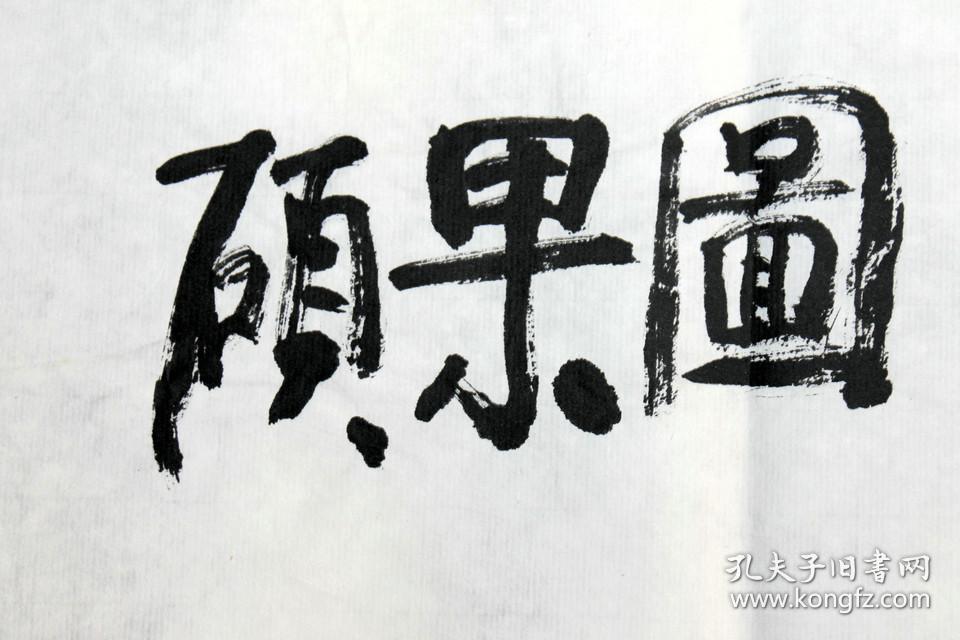 碩果圖
孔夫子旧書网
www.kongfz.com